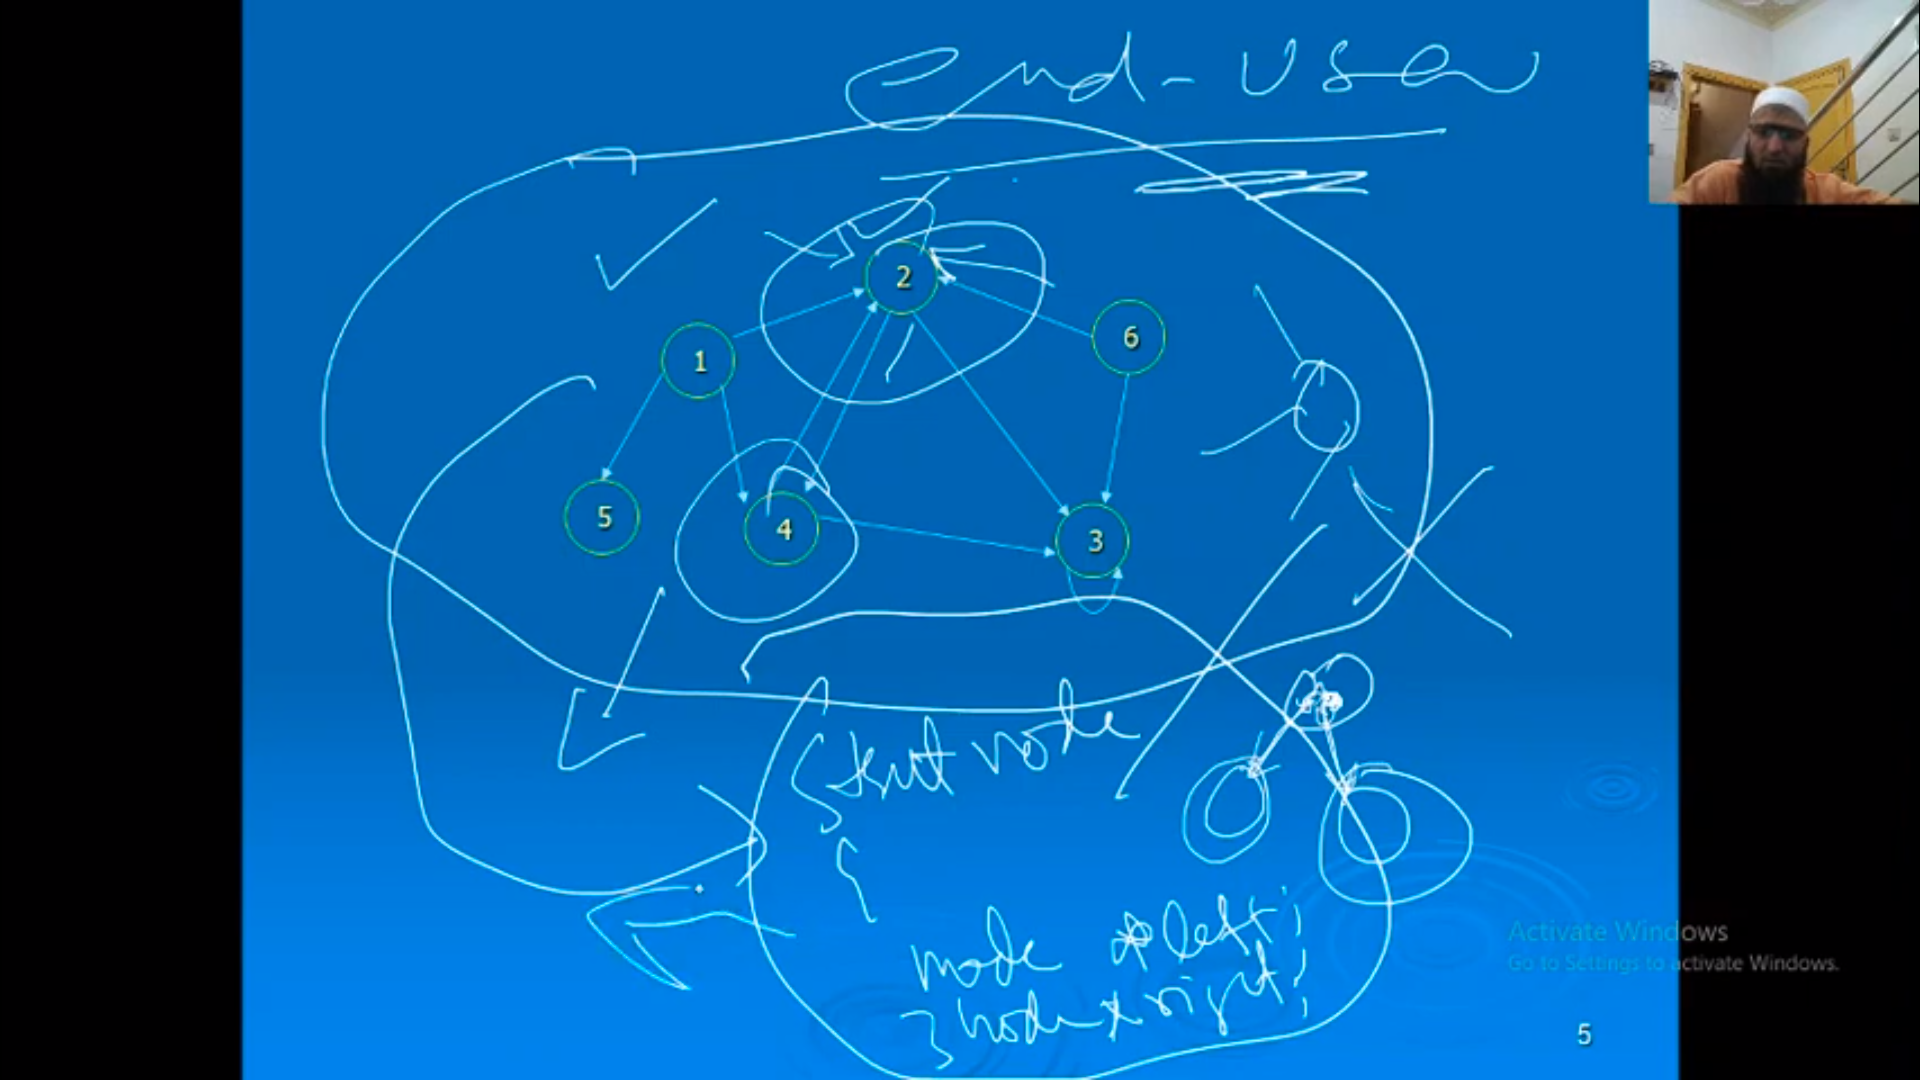 end-user
2
6
1
5
4
3
struct node
{
node *left;
node *right;
}
Activate Windows
Go to Settings to activate Windows.
5